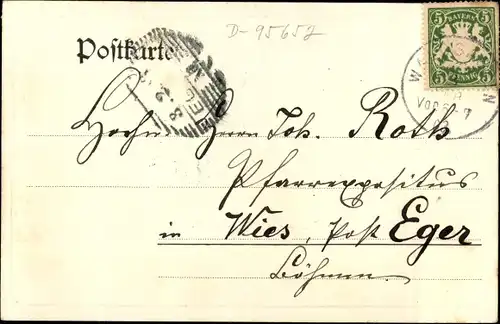 D-95652
Postkarte
5 BAYERN 5
5 PFENNIG 5
EGER
VOR 6-7
Hochw Herrn Joh. Roth
Pfarrexpositus
in Wies, Post Eger
Böhmen.